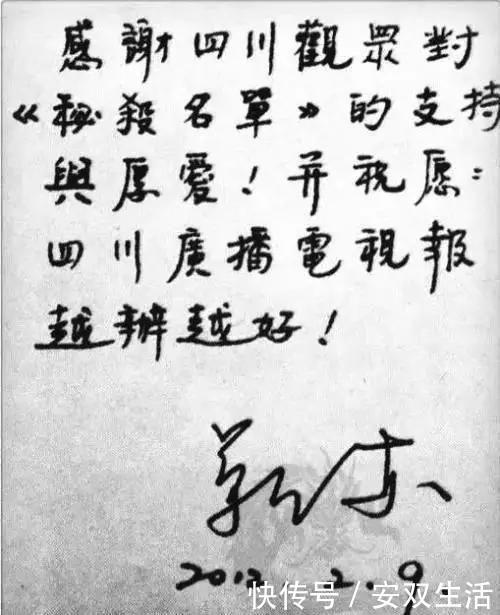 感謝四川觀眾對
《秘殺名單》的支持
與厚愛！并祝愿：
四川廣播電視報
越辦越好！
靳东
2.9.
快传号 / 安双生活